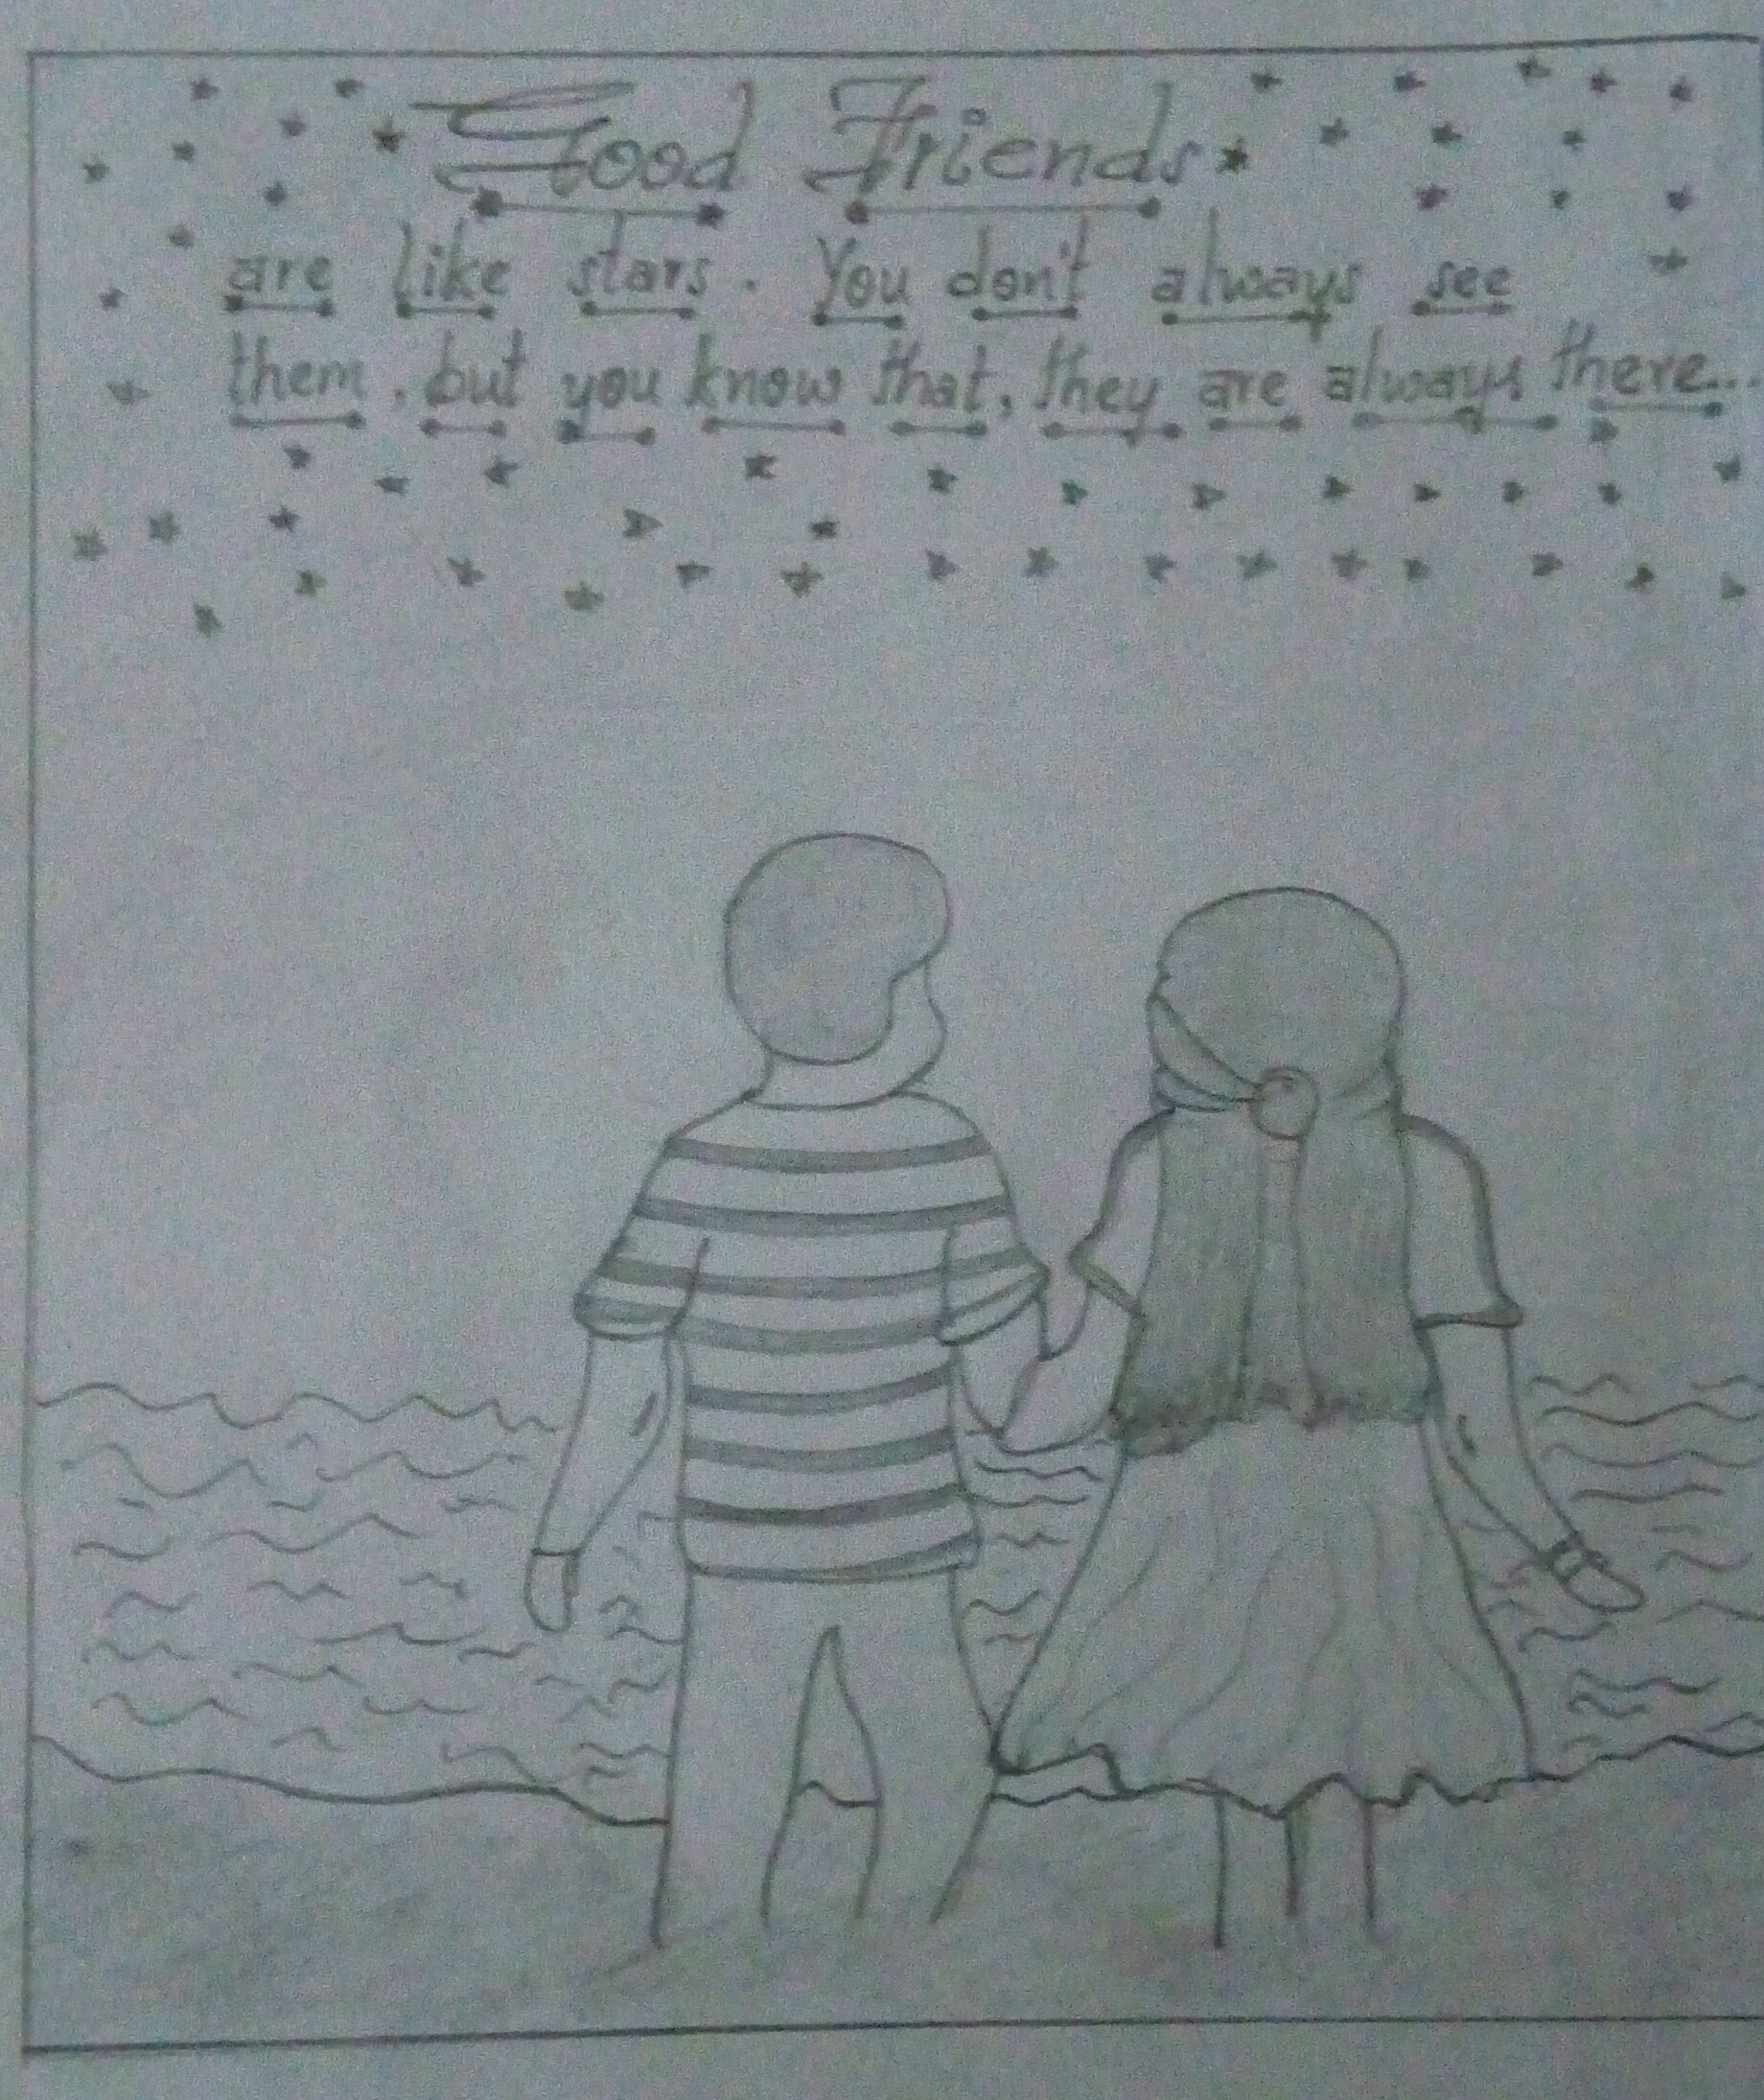 Good Friends
are like stars. You don't always see
them, but you know that, they are always there...